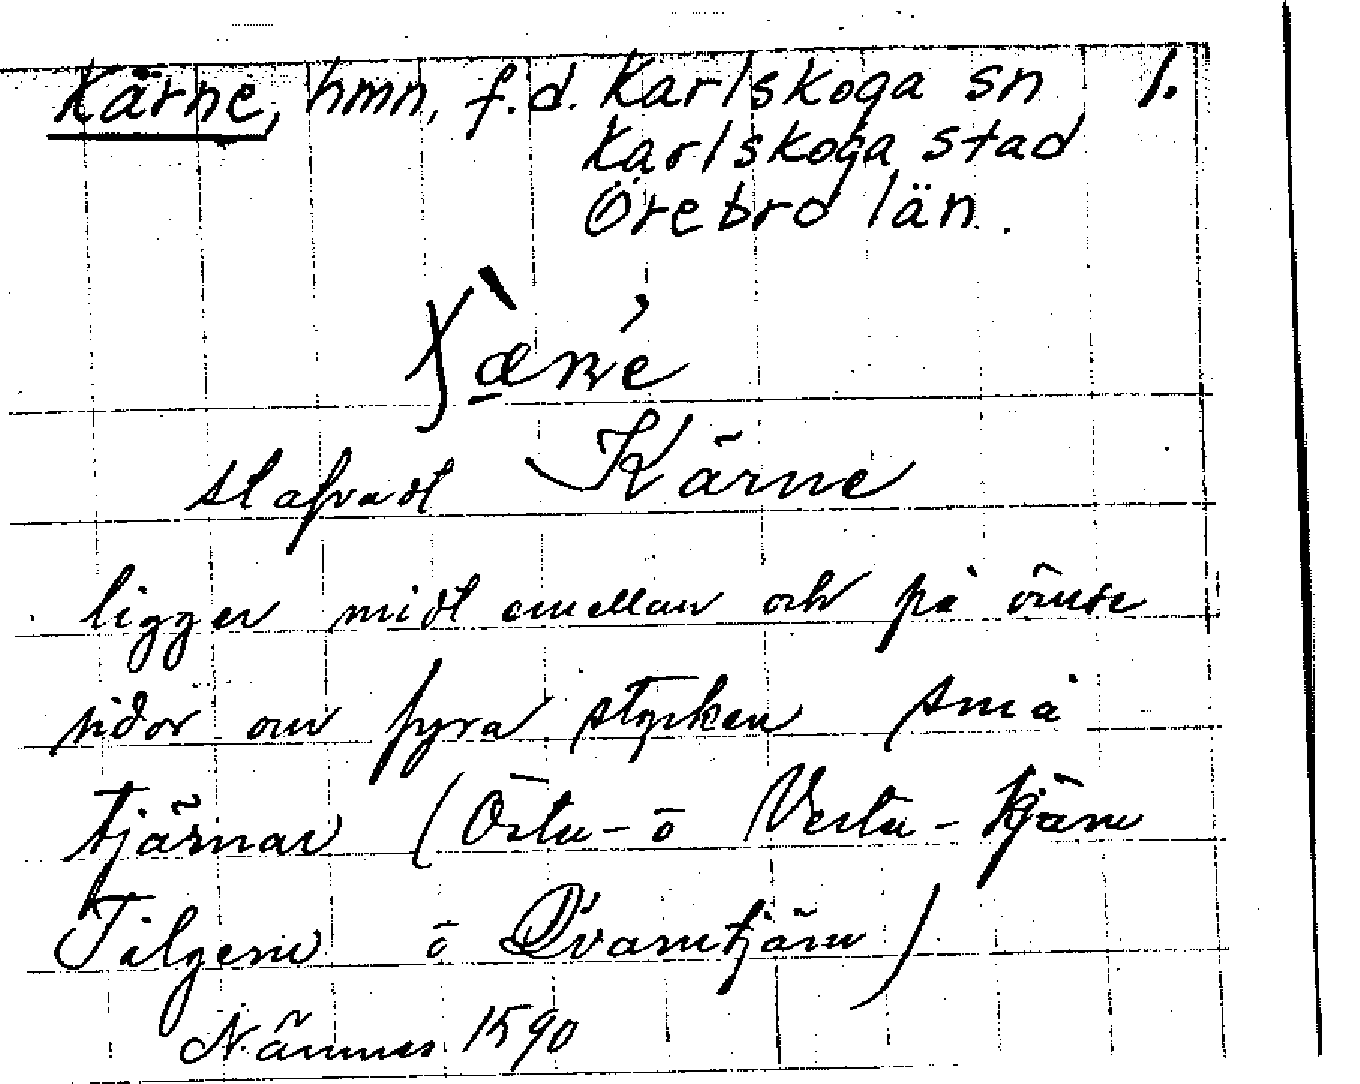 Kärne, hmn, f.d. Karlskoga sn 1.
Karlskoga stad
Örebro län.
stafvadt Kärne
ligger midt emellan och på ömse
sidor om fyra stycken små
tjärnar (Östra- o Vestra- kjärn
o Qvarntjärn)
Nämnes 1590